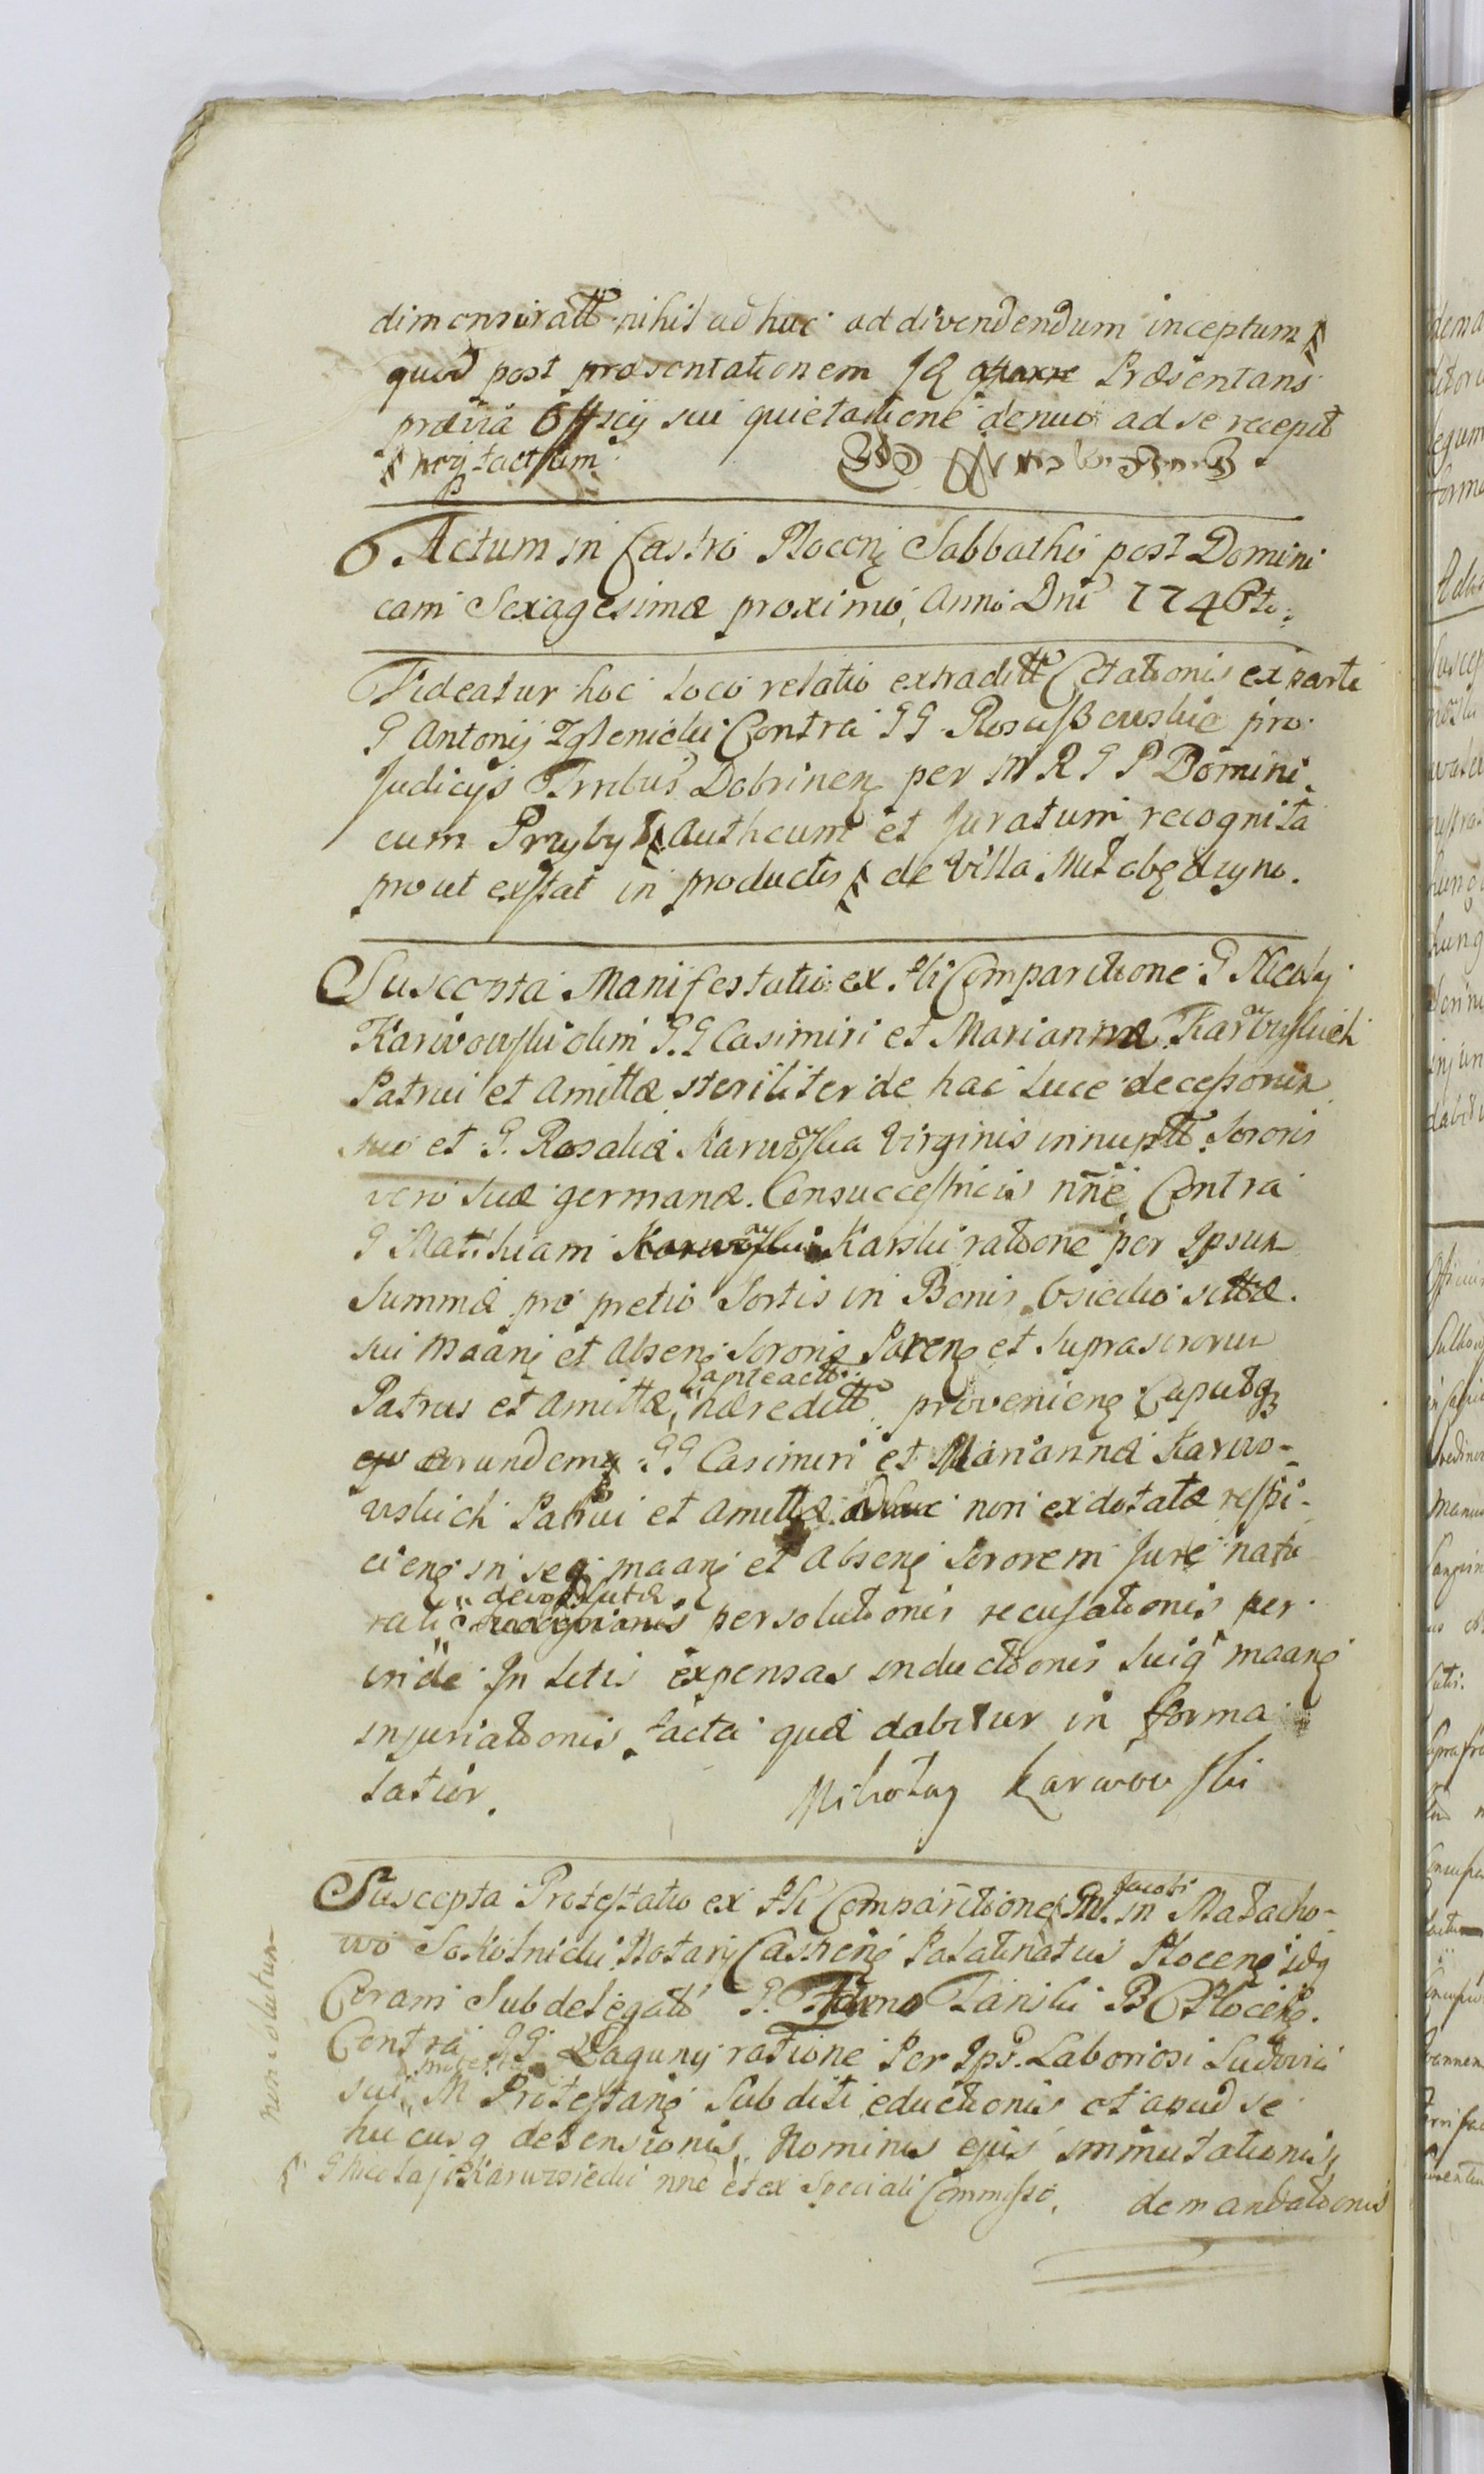 dimensuratt nihil ad huc ad divendendum inceptum
quod post præsentationem Præsentans
præviâ Officij sui quietatione denuo ad se recepit
præfactum
Actum in Castro Plocen Sabbatho post Domini
cam Sexagesimæ proximo, Anno Dni 1746to.
Videatur hoc loco relatio extraditt Citationis ex parte
G Antonij Zglenicki Contra GG Rosciszewskie pro
Judicijs Trribus Dobrinen per M R G P Domini
cum Przyby Authcum et Juratum recognita
prout exstat in productis de Villa
Suscepta Manifestatio ex Hi Comparitione G Nicolaj
Karwowski olim G.G Casimiri et Mariannæ Karwowskich
Patrui et Amittæ steriliter de hac luce decessorum
suo et G. Rosaliæ Karwoska Virginis innuptæ Sororis
vero suæ germanæ. Consuccessricis nne Contra
G Mathiam Karwoski Karski ratione per Ipsum
Summæ pro pretio Sortis in Bonis Osieko sittæ.
sui Maani et Absen Sororis Paren et suprascrorum
anteactt
Patrus et Amittæ, hæreditt provenien Caputq
earundemq GG Casimiri et Mariannæ Karwo-
wskich Patrui et Amittæ adhuc non exdotatæ respi-
cien in seq maani et Absen Sororem Jure natu
devolutæ
rali persolutionis recusationis per
inde In Litis expensas inductionis suiq maani
injuriationis facta quæ dabitur in forma
latior.
Mikołay Karwowski
Suscepta Protestatio ex Hi Comparitione M.
Jacobi
in Małacho-
wo Sokolnicki Notarij Castren Palatinatus Plocen idq
Coram Subdelegato G. Tanski B C Plocen.
Contra GG Łaguny ratione Per Ips. Laboriosi Ludovici
sui M Protestan Subditi eductionis et apud se
hucusq detensionis, Nominis ejus immutationis,
G Nicolaj Karwosiecki nne et ex Speciali Commisso.
demandationis
non solutum